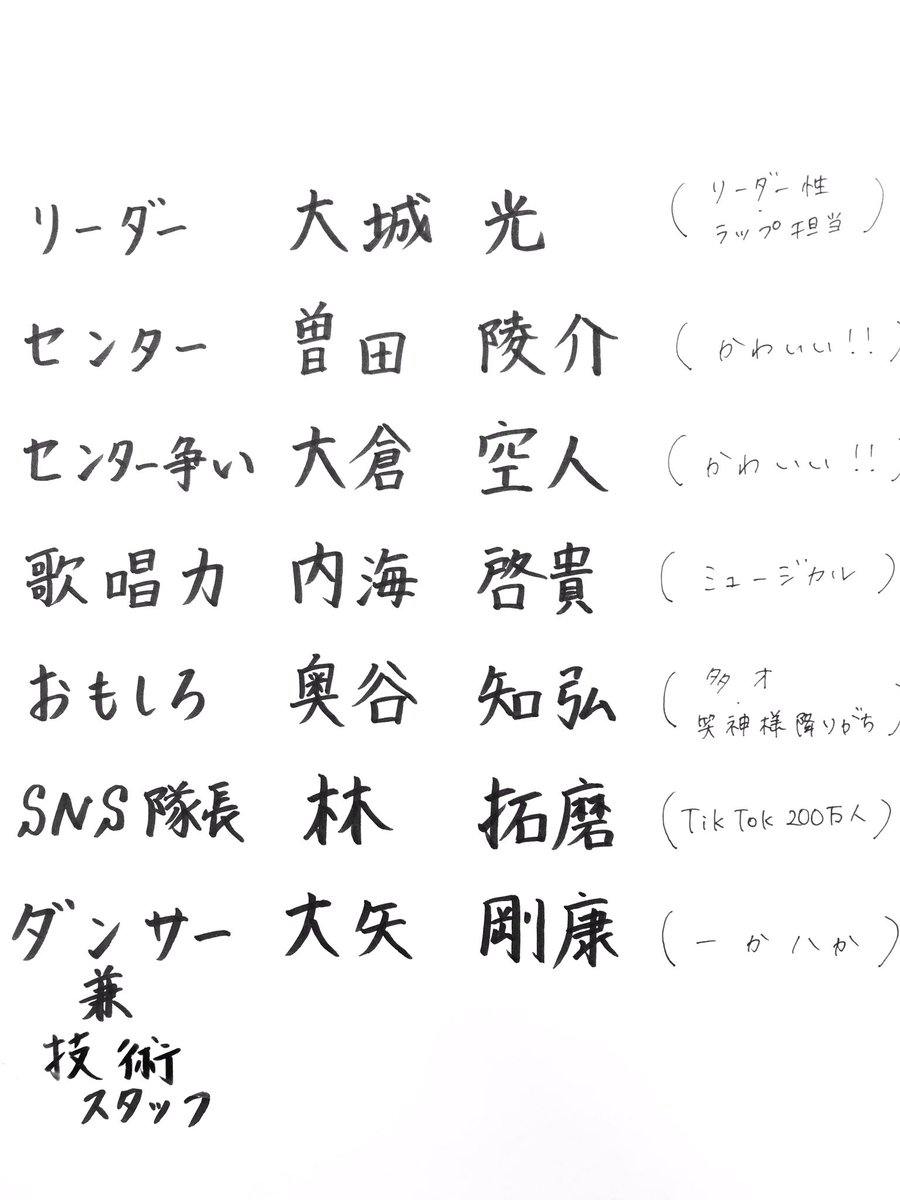 リーダー 大城 光 (リーダー性・ラップ担当)
センター 曽田 陵介 (かわいい!!)
センター争い 大倉 空人 (かわいい!!)
歌唱力 内海 啓貴 (ミュージカル)
おもしろ 奥谷 知弘 (多才・笑神様降りがち)
SNS隊長 林 拓磨 (TikTok 200万人)
ダンサー 大矢 剛康 (一か八か)
兼
技術
スタッフ